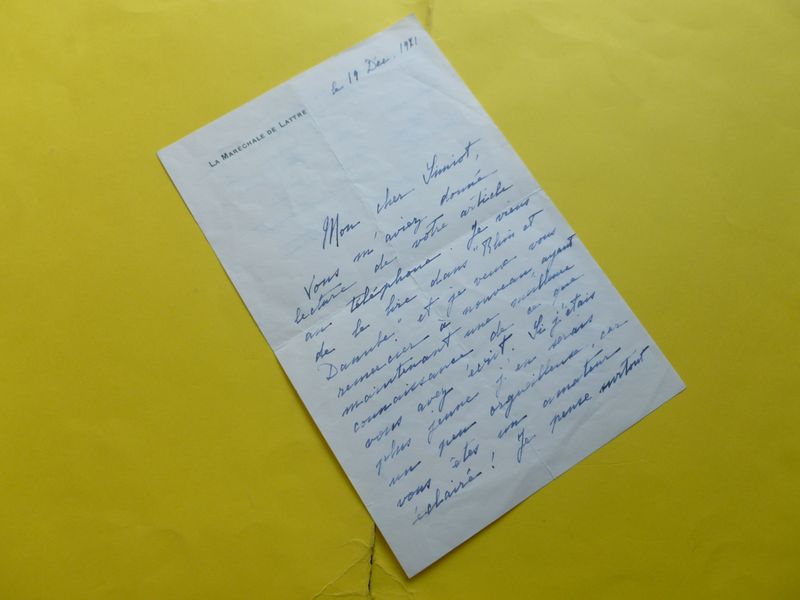 le 19 Dec. 1981
LA MARÉCHALE DE LATTRE
Mon cher Simiot,
Vous m'aviez donné
lecture de votre article
au téléphone. Je viens
de le lire dans "Rhin et
Danube" et je veux vous
remercier à nouveau, ayant
maintenant une meilleure
connaissance de ce que
vous avez écrit. Si j'étais
plus jeune j'en serais
un peu orgueilleuse, car
vous êtes un amateur
éclairé! Je pense surtout